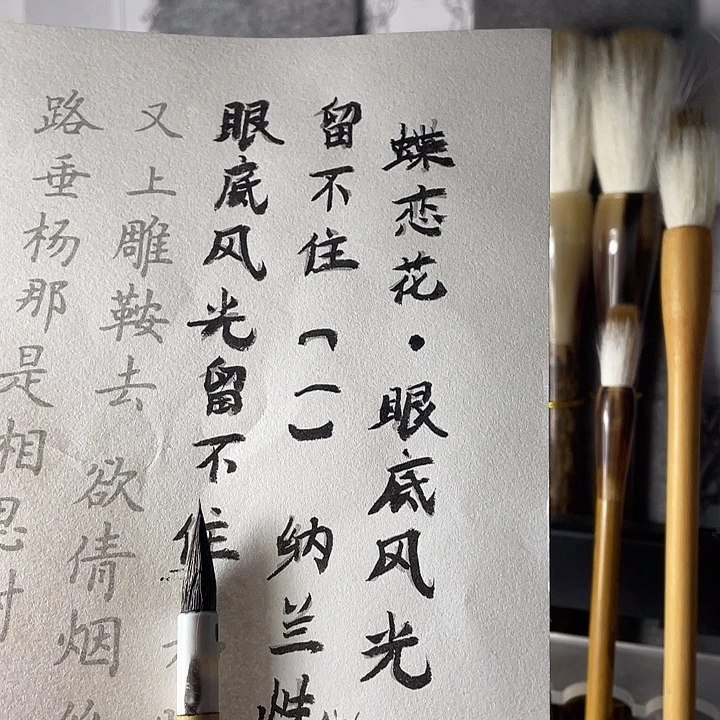 蝶恋花·眼底风光
留不住（一） 纳兰性
眼底风光留不住
又上雕鞍去 欲倩烟
路垂杨那是相思时